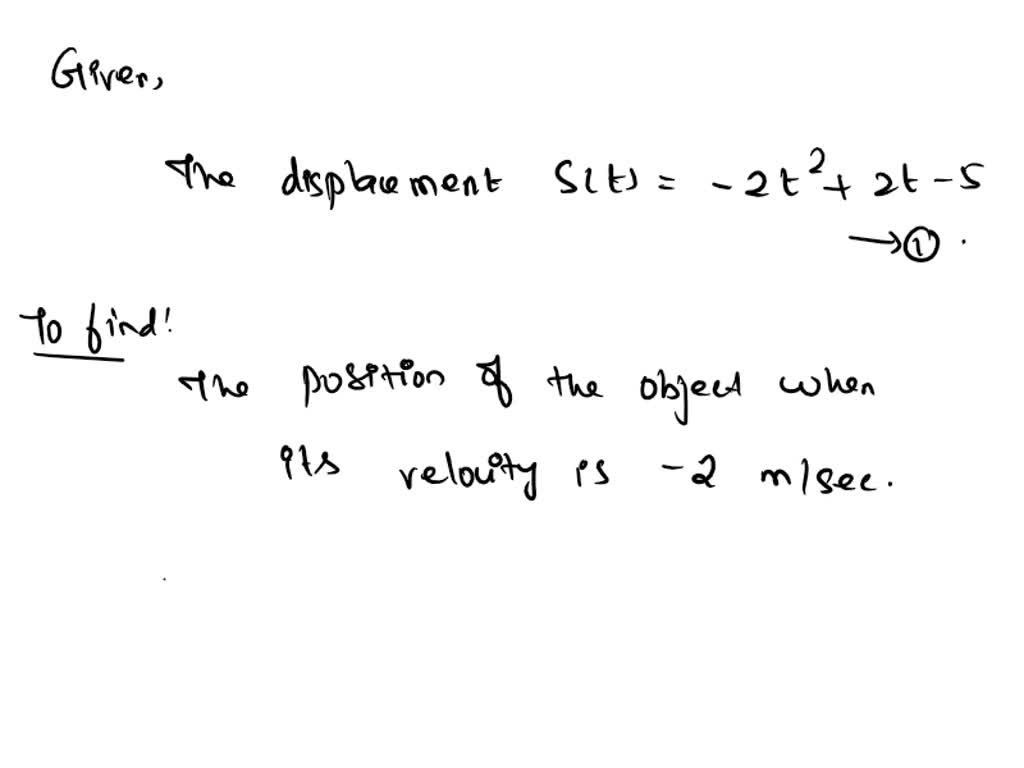 Given,
The displacement S(t) = -2t²+ 2t -5
→①.
To find!
The position of the object when
its velocity is -2 m/sec.